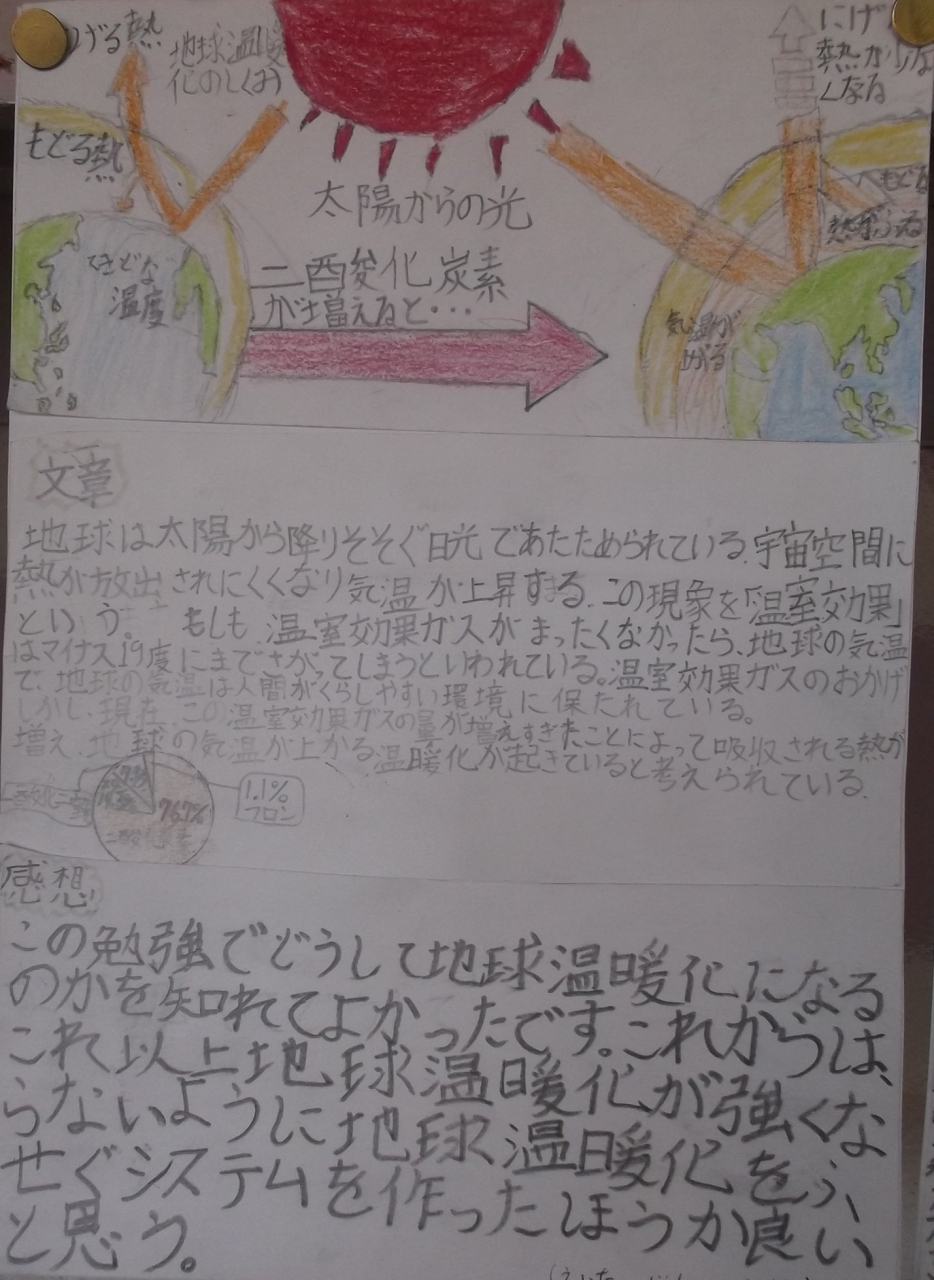 げる熱
地球温暖
化のしくみ
にげ
熱が少な
くなる
もどる熱
太陽からの光
もどる
熱がふえる
てきどな
温度
二酸化炭素
が増えると・・・
気温が
上がる
文章
地球は太陽から降りそそぐ日光であたためられている。宇宙空間に
熱が放出されにくくなり気温が上昇する。この現象を「温室効果」
という。もしも、温室効果ガスがまったくなかったら、地球の気温
はマイナス19度にまでさがってしまうといわれている。温室効果ガスのおかげ
で、地球の気温は人間がくらしやすい環境に保たれている。
しかし、現在、この温室効果ガスの量が増えすぎたことによって吸収される熱が
増え、地球の気温が上がる温暖化が起きていると考えられている。
76.7%
二酸化炭素
1.1%
フロン
感想
この勉強でどうして地球温暖化になる
のかを知れてよかったです。これからは、
これ以上地球温暖化が強くな
らないように地球温暖化をふ
せぐシステムを作ったほうが良い
と思う。